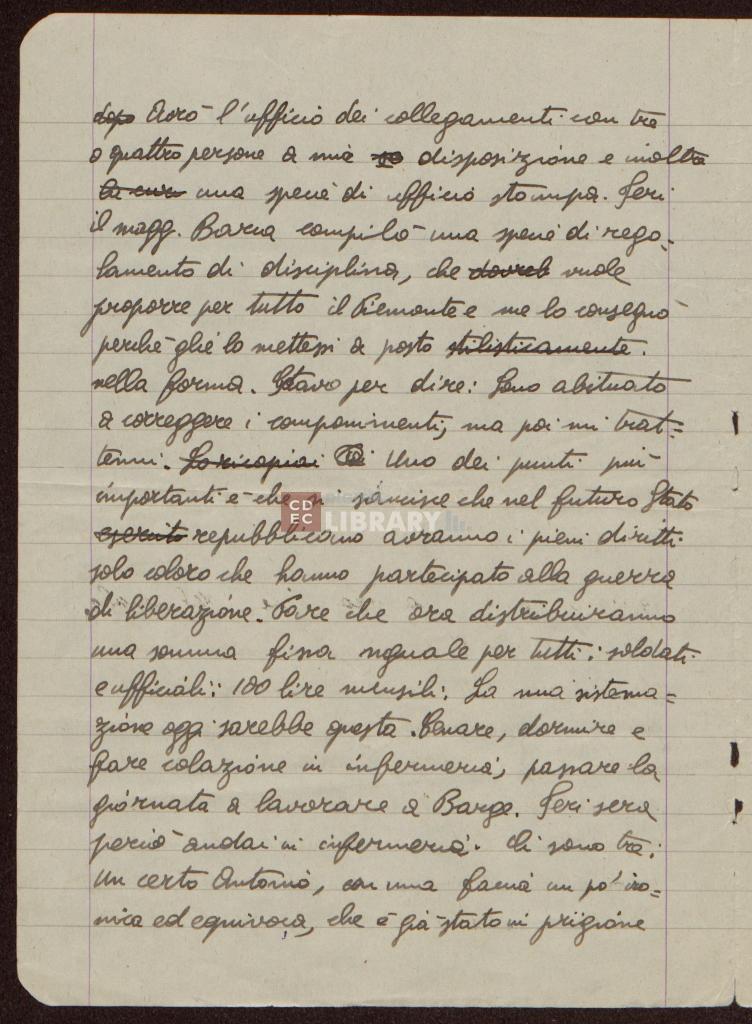 dopo Avrò l'ufficio dei collegamenti con tre
o quattro persone a mia disposizione e inoltre
la cur una specie di ufficio stampa. Ieri
il magg. Barca compilò una specie di rego-
lamento di disciplina, che dovreb vuole
proporre per tutto il Piemonte e me lo consegnò
perchè glie lo mettessi a posto stilisticamente.
nella forma. Stavo per dire: Sono abituato
a correggere i componimenti, ma poi mi trat=
tenni. Lo ricopiai Uno dei punti più
importanti è che si sancisce che nel futuro Stato
esercito repubblicano avranno i pieni diritti
solo coloro che hanno partecipato alla guerra
di liberazione. Pare che ora distribuiranno
una somma fissa uguale per tutti: soldati
e ufficiali: 100 lire mensili. La mia sistema=
zione oggi sarebbe questa. Cenare, dormire e
fare colazione in infermeria, passare la
giornata a lavorare a Barge. Ieri sera
perciò andai in infermeria. Ci sono tre:
un certo Antonio, con una faccia un po' iro=
nica ed equivoca, che è già stato in prigione
CDEC LIBRARY